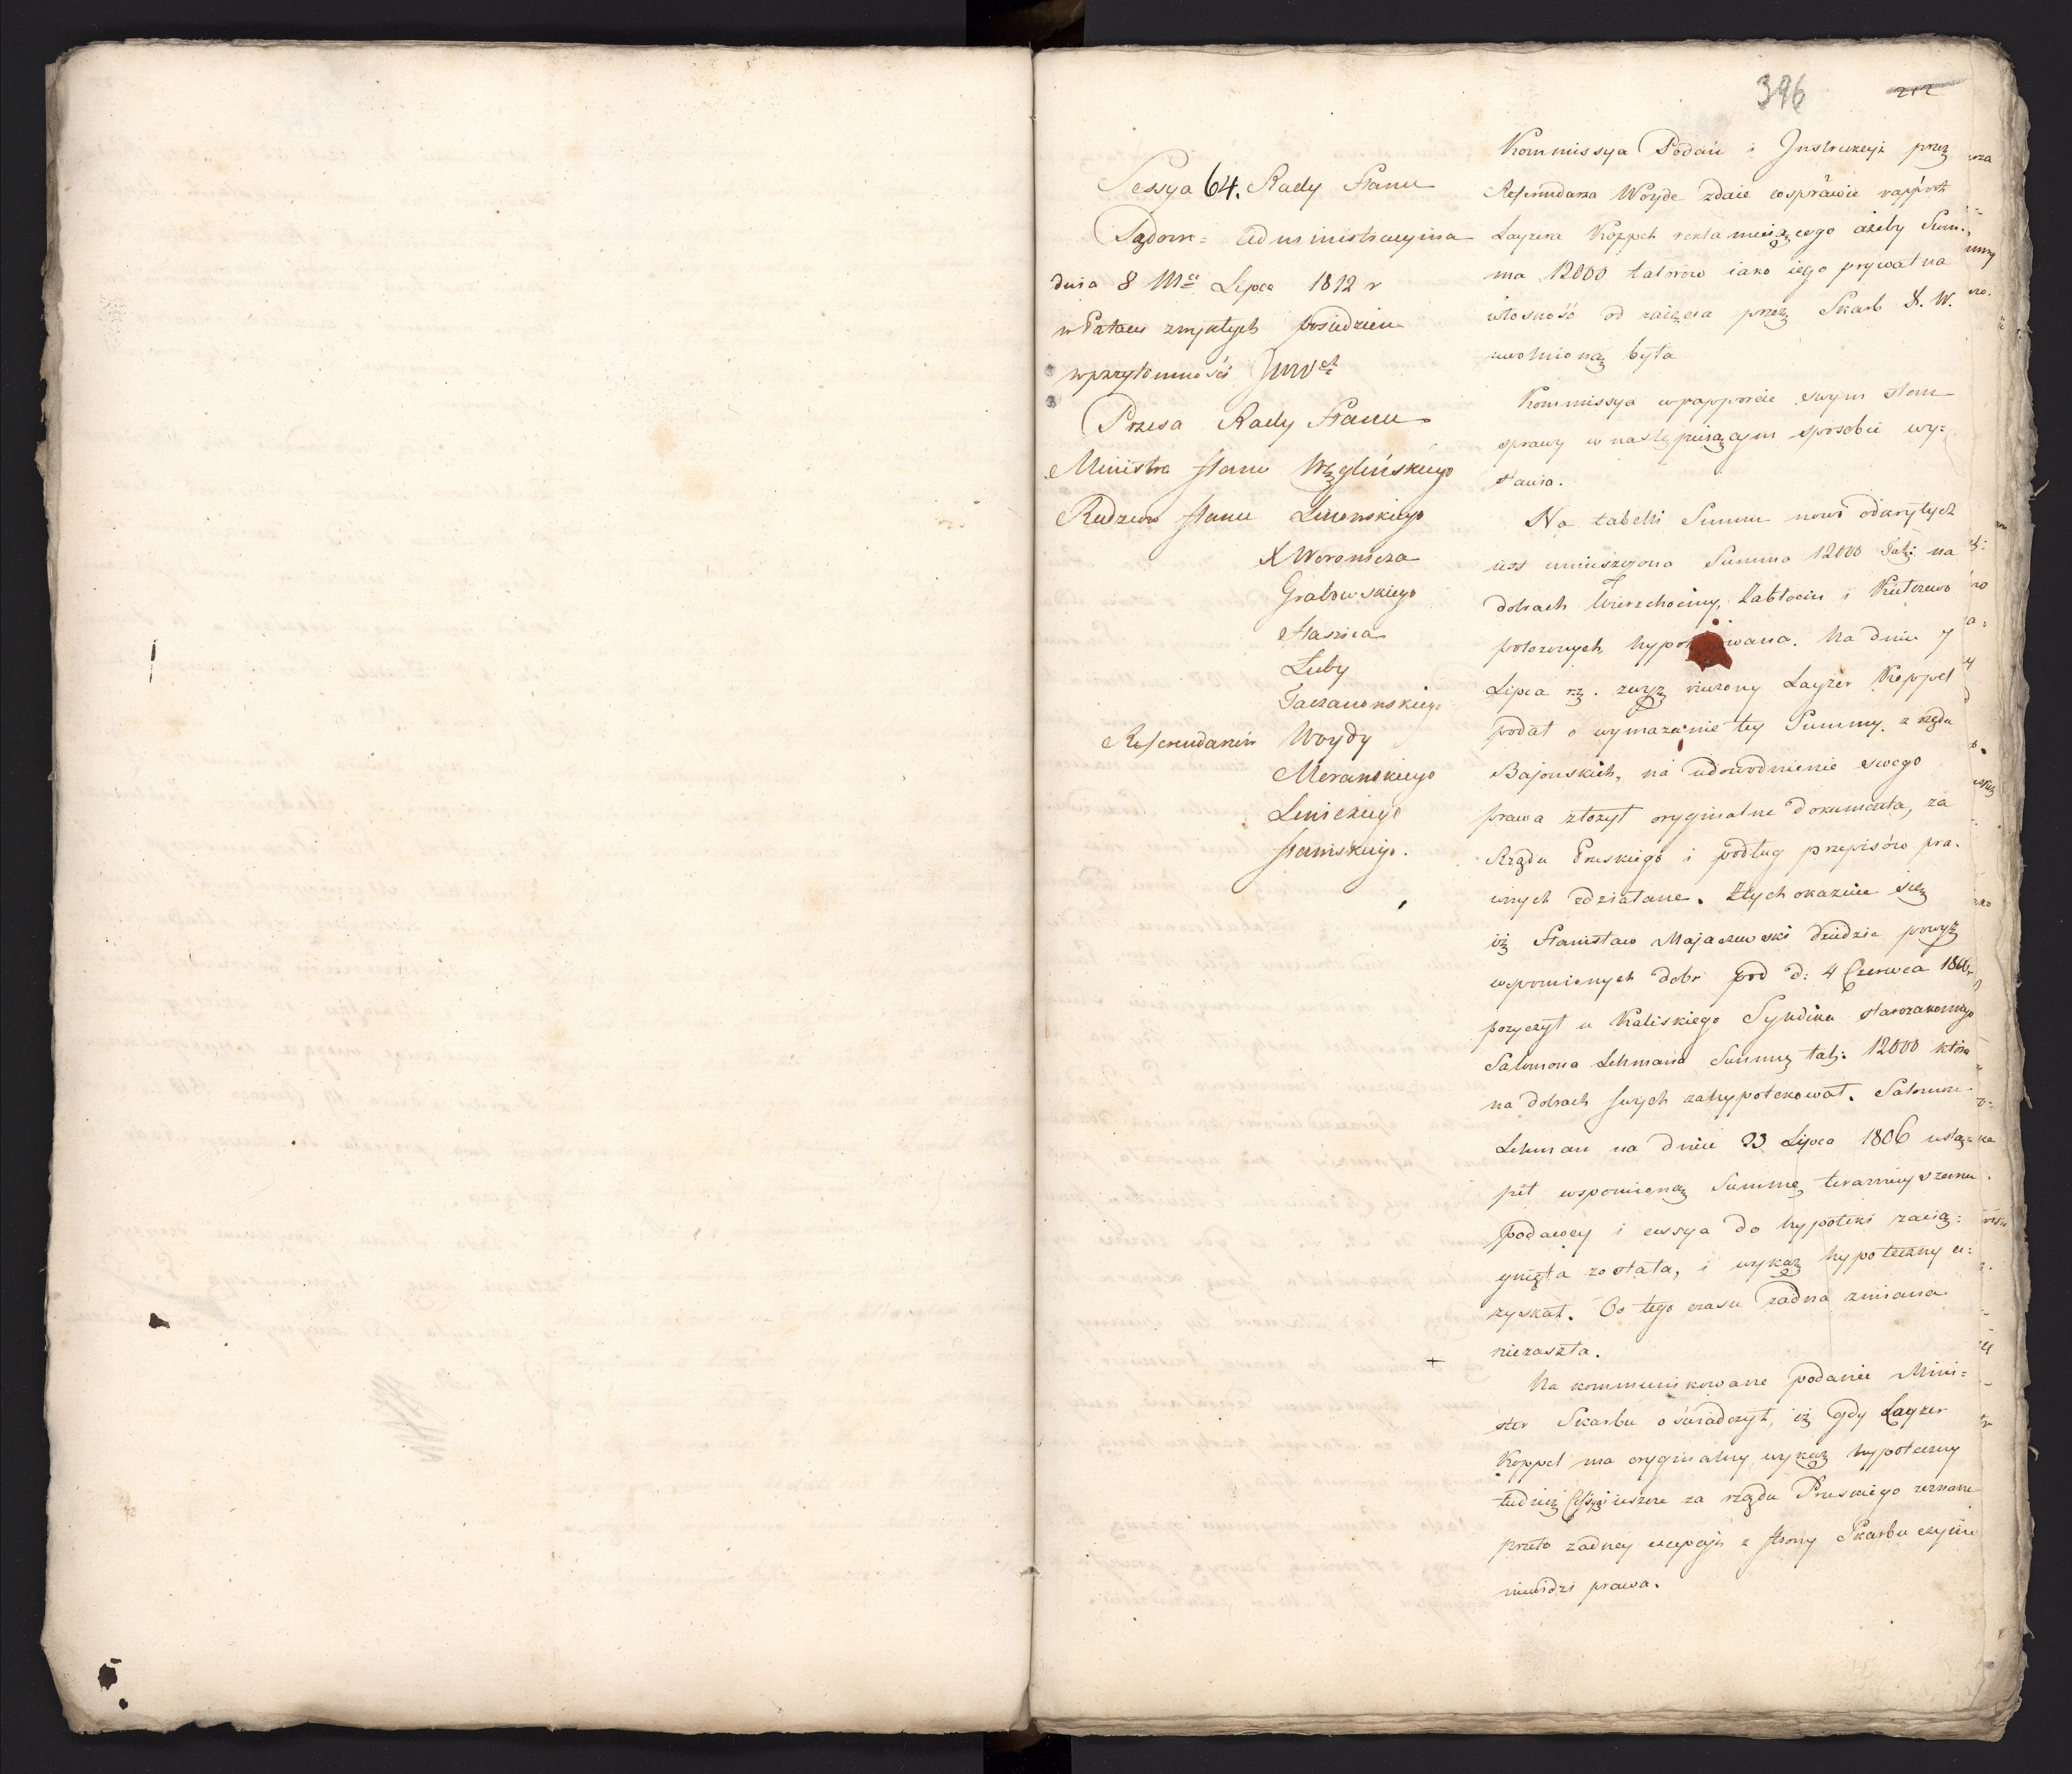 396
212
Sessya 64. Rady Stanu
Sądow= Administracyina
dnia 8 Mca Lipca 1812 r
w Pałacu zwykłych posiedzeń
w przytomności
Prezesa Rady Stanu
Ministra Stanu Węglińskiego
Radzców Stanu Linowskiego
X Woronicza
Grabowskiego
Staszica
Luby
Taczanowskiego
Referendarzów Woydy
Morawskiego
Stamskiego.
Kommissya Podań i Instrukcyi przez
Referendarza Woyde zdaie w sprawie rapport
Layzera Koppel reklamuiącego ażeby Sum=
ma 12000 talarów iako iego prywatna
włosność od zaięcia przez Skarb X. W.
uwolnioną była
Kommissya w rapporcie swym stan
sprawy w następuiącym sposobie wy=
stawia.
Na tabelli Summ nowo odkrytych
iest umieszczona Summa 12000 Tal: na
dobrach Wierzchociny, Zabłocin i Kutorewo
położonych, hypotekowana. Na dniu 7
Lipca rz. zwyż rzeczony Layzer Koppel
podał o wymazanie tey Summy z rzędu
Bajońskich, na udowodnienie swego
prawa złożył oryginalne dokumenta, za
Rządu Pruskiego i podług przepisów pra=
wnych zdziałane. Z tych okazuie się
iż Stanisław Majaczewski dziedzic powyż
wspomionych dobr pod d: 4 Czerwca 1806 r
pozyczył u Kaliskiego Syndika starozakonnego
Salomona Lehmana Summę tal: 12000 która
na dobrach swych zahypotekował. Salomon
Lehman na dniu 23 Lipca 1806 ustą=
pił wspomioną Summę teraznieyszemu
podawcy i cessya do hypoteki zacią=
gnięta została, i wykaz hypoteczny u=
zyskał. Od tego czasu żadna zmiana
niezaszła.
+
Na kommunikowane podanie Mini=
ster Skarbu oświadczył, iż gdy Layzer
Koppel ma oryginalny wykaz hypoteczny
tudzież Cessyi ieszcze za rządu Pruskiego zeznane
przeto żadney excepcyi z strony Skarbu czynić
niewidzi prawa.